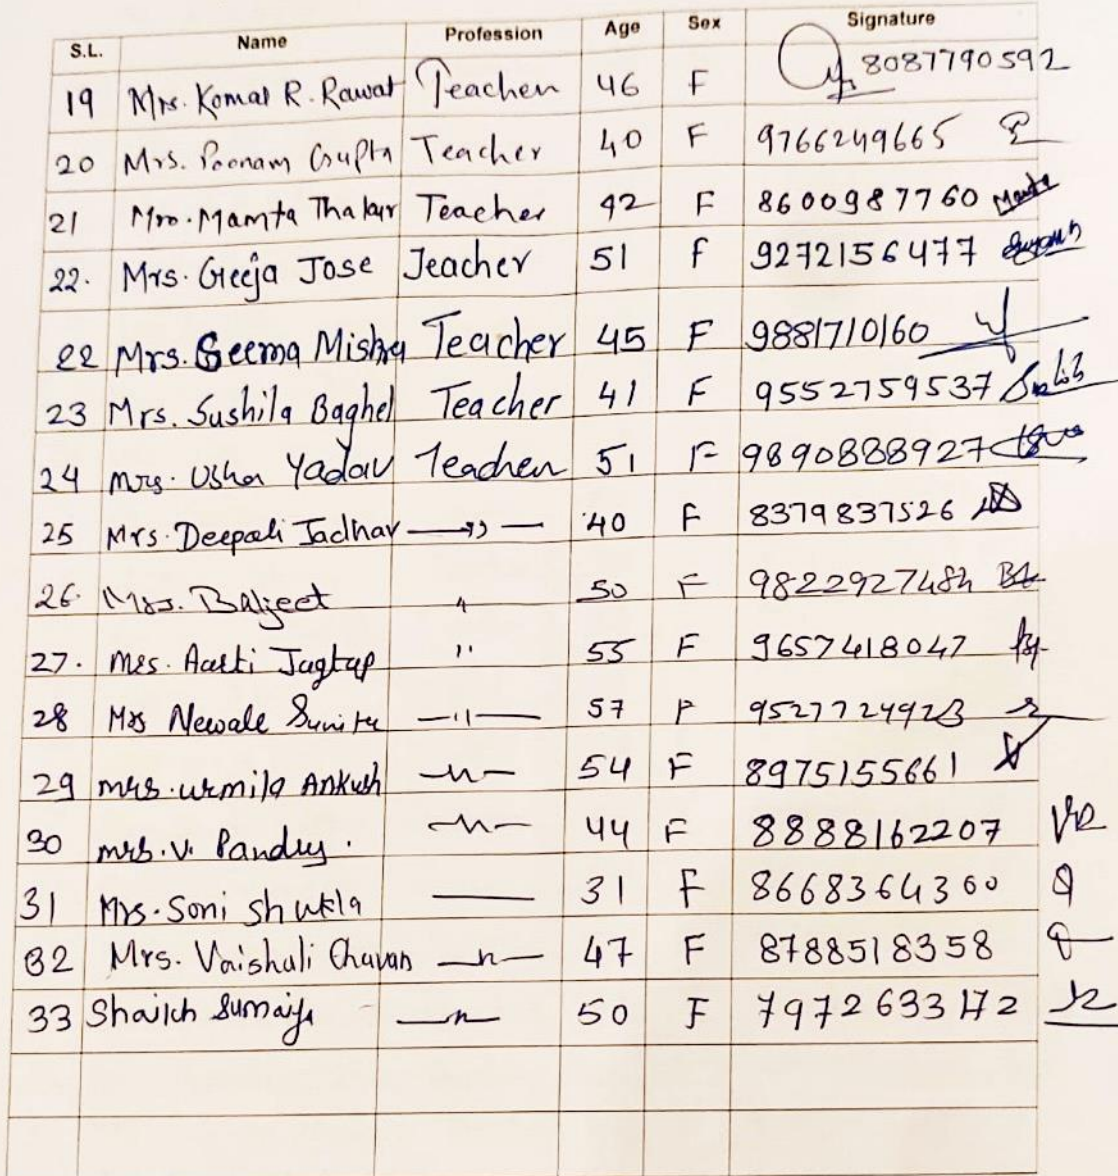 S.L. Name Profession Age Sex Signature
19 Mrs. Komal R. Rawat Teacher 46 F 8087790592
20 Mrs. Poonam Gupta Teacher 40 F 9766249665
21 Mrs. Mamta Thakur Teacher 42 F 8600987760 Mamta
22. Mrs. Geeja Jose Teacher 51 F 9272156477
22 Mrs. Seema Mishra Teacher 45 F 9881710160
23 Mrs. Sushila Baghel Teacher 41 F 9552759537
24 Mrs. Usha Yadav Teacher 51 F 9890888927
25 Mrs. Deepali Jadhav —,,— 40 F 8379837526
26. Mrs. Baljeet " 50 F 982292748
27. Mrs. Aarti Jagtap " 55 F 9657418047
28 Mrs Newale Sunita —"— 57 F
29 mrs. urmila Ankush —"— 54 F 8975155661
30 mrs. v. Pandey. —"— 44 F 8888162207
31 Mrs. Soni Shukla — 31 F 8668364360
32 Mrs. Vaishali Chavan —"— 47 F 8788518358
33 Shaikh Sumaiya —"— 50 F